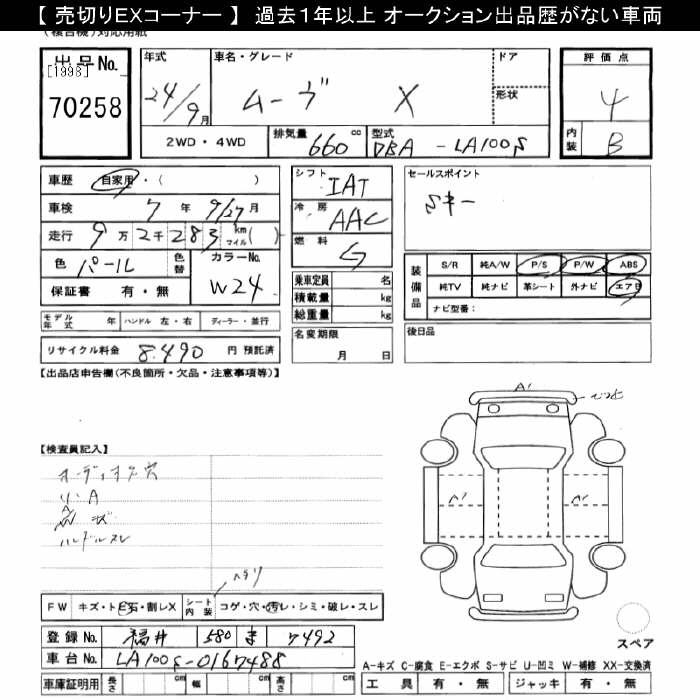 【 売切りEXコーナー 】 過去1年以上 オークション出品歴がない車両
出品No.
[1998]
70258
年式
24/9月
車名・グレード
ムーヴ X
ドア
形状
2WD・4WD
排気量 660 cc
型式 DBA - LA100S
評価点
4
内装 B
車歴 自家用・( )
車検 7年 9/27月
走行 9万2千283 km マイル( )
色 パール 色替
カラーNo. W24
保証書 有・無
シフト IAT
冷房 AAC
燃料 G
乗車定員 名
積載量 kg
総重量 kg
セールスポイント
Sキー
装備品
S/R 純A/W P/S P/W ABS
純TV 純ナビ 革シート 外ナビ エアB
ナビ型番:
モデル年式 年 ハンドル 左・右 ディーラー・並行
リサイクル料金 8,490 円 預託済
名変期限
月 日
後日品
【出品店申告欄(不良箇所・欠品・注意事項等)】
A1
【検査員記入】
オーディオ穴
リ・A
ハンドルスレ
A1 A1
ヘタリ
FW キズ・ト石・割レX
シート内装 コゲ・穴・汚レ・シミ・破レ・スレ
登録No. 福井 580 ま 7492
車台No. LA100S-0167488
スペア
A-キズ C-腐食 E-エクボ S-サビ U-凹ミ W-補修 XX-交換済
車庫証明用 長さ cm 幅 cm 高さ cm
工具 有・無 ジャッキ 有・無